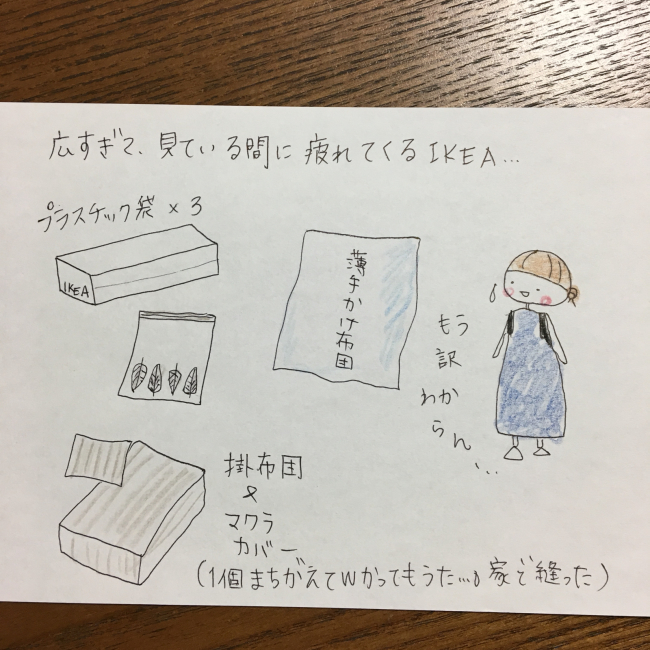 広すぎて、見ている間に疲れてくるIKEA...
プラスチック袋×3
IKEA
薄手かけ布団
もう
訳
わから
らん、...
掛布団
&
マクラ
カバー
(1個まちがえてWかってもうた...。家で縫った)